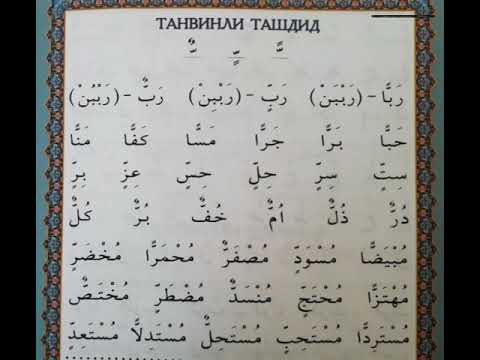 ТАНВИНЛИ ТАШДИД
ـًّ ـٍّ ـٌّ
رَبًّا - (رَبْبَنْ) رَبٍّ - (رَبْبِنْ) رَبٌّ - (رَبْبُنْ)
حَبًّا بَرًّا جَرًّا مَسًّا كَفًّا مَنًّا
سِتٍّ سِرٍّ حِلٍّ حِسٍّ عِزٍّ بِرٍّ
دُرٌّ ذُلٌّ اُمٌّ خُفٌّ بُرٌّ كُلٌّ
مُبْيَضًّا مُسْوَدٍّ مُصْفَرٌّ مُحْمَرًّا مُخْضَرٍّ
مُهْتَزًّا مُحْتَجٍّ مُنْسَدٌّ مُضْطَرٍّ مُخْتَصٌّ
مُسْتَرِدًّا مُسْتَحِبٍّ مُسْتَحِلٌّ مُسْتَدِلًّا مُسْتَعِدٍّ